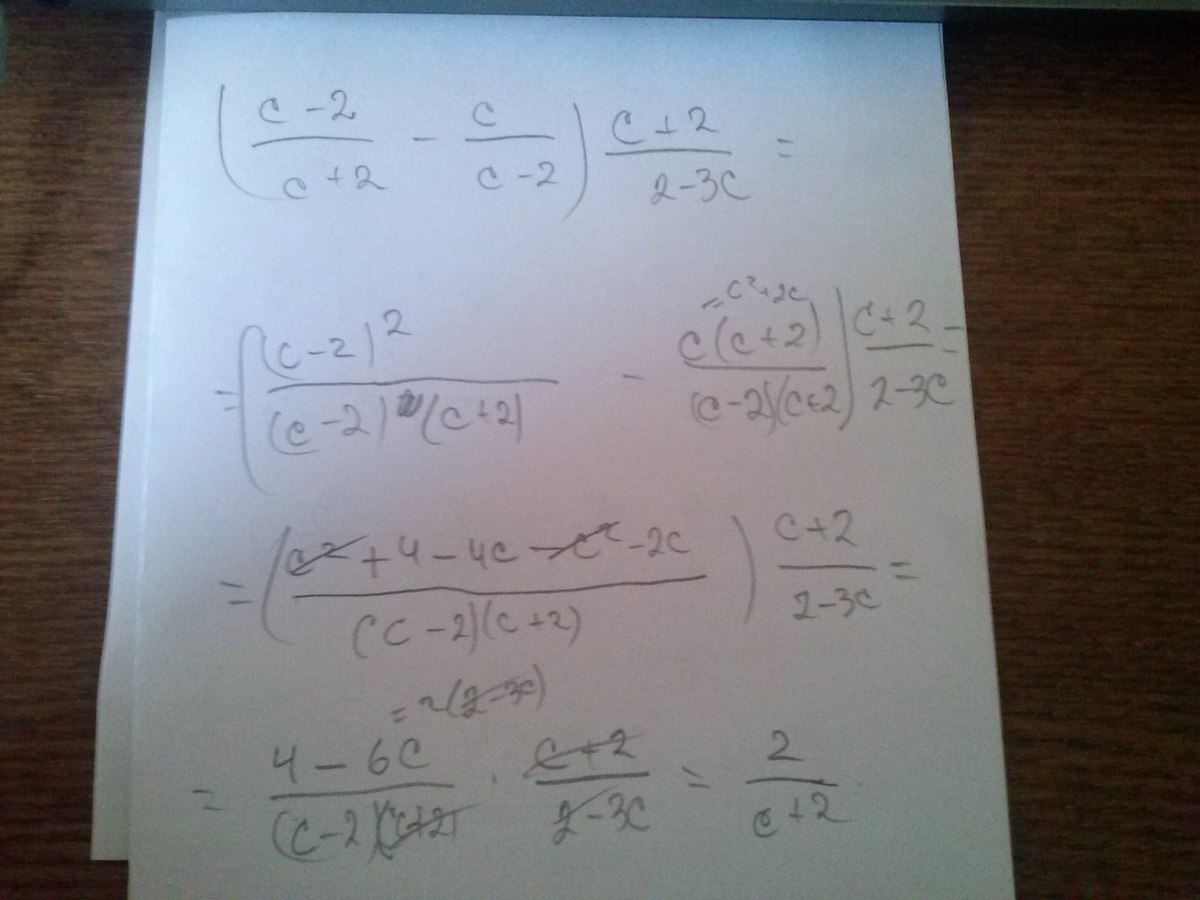 ( (c-2)/(c+2) - c/(c-2) ) (c+2)/(2-3c) =
= c²+2c
= ( (c-2)²/((c-2)(c+2)) - c(c+2)/((c-2)(c+2)) ) (c+2)/(2-3c) =
= ( (c²+4-4c-c²-2c)/((c-2)(c+2)) ) (c+2)/(2-3c) =
= 2(2-3c)
= (4-6c)/((c-2)(c+2)) · (c+2)/(2-3c) = 2/(c+2)